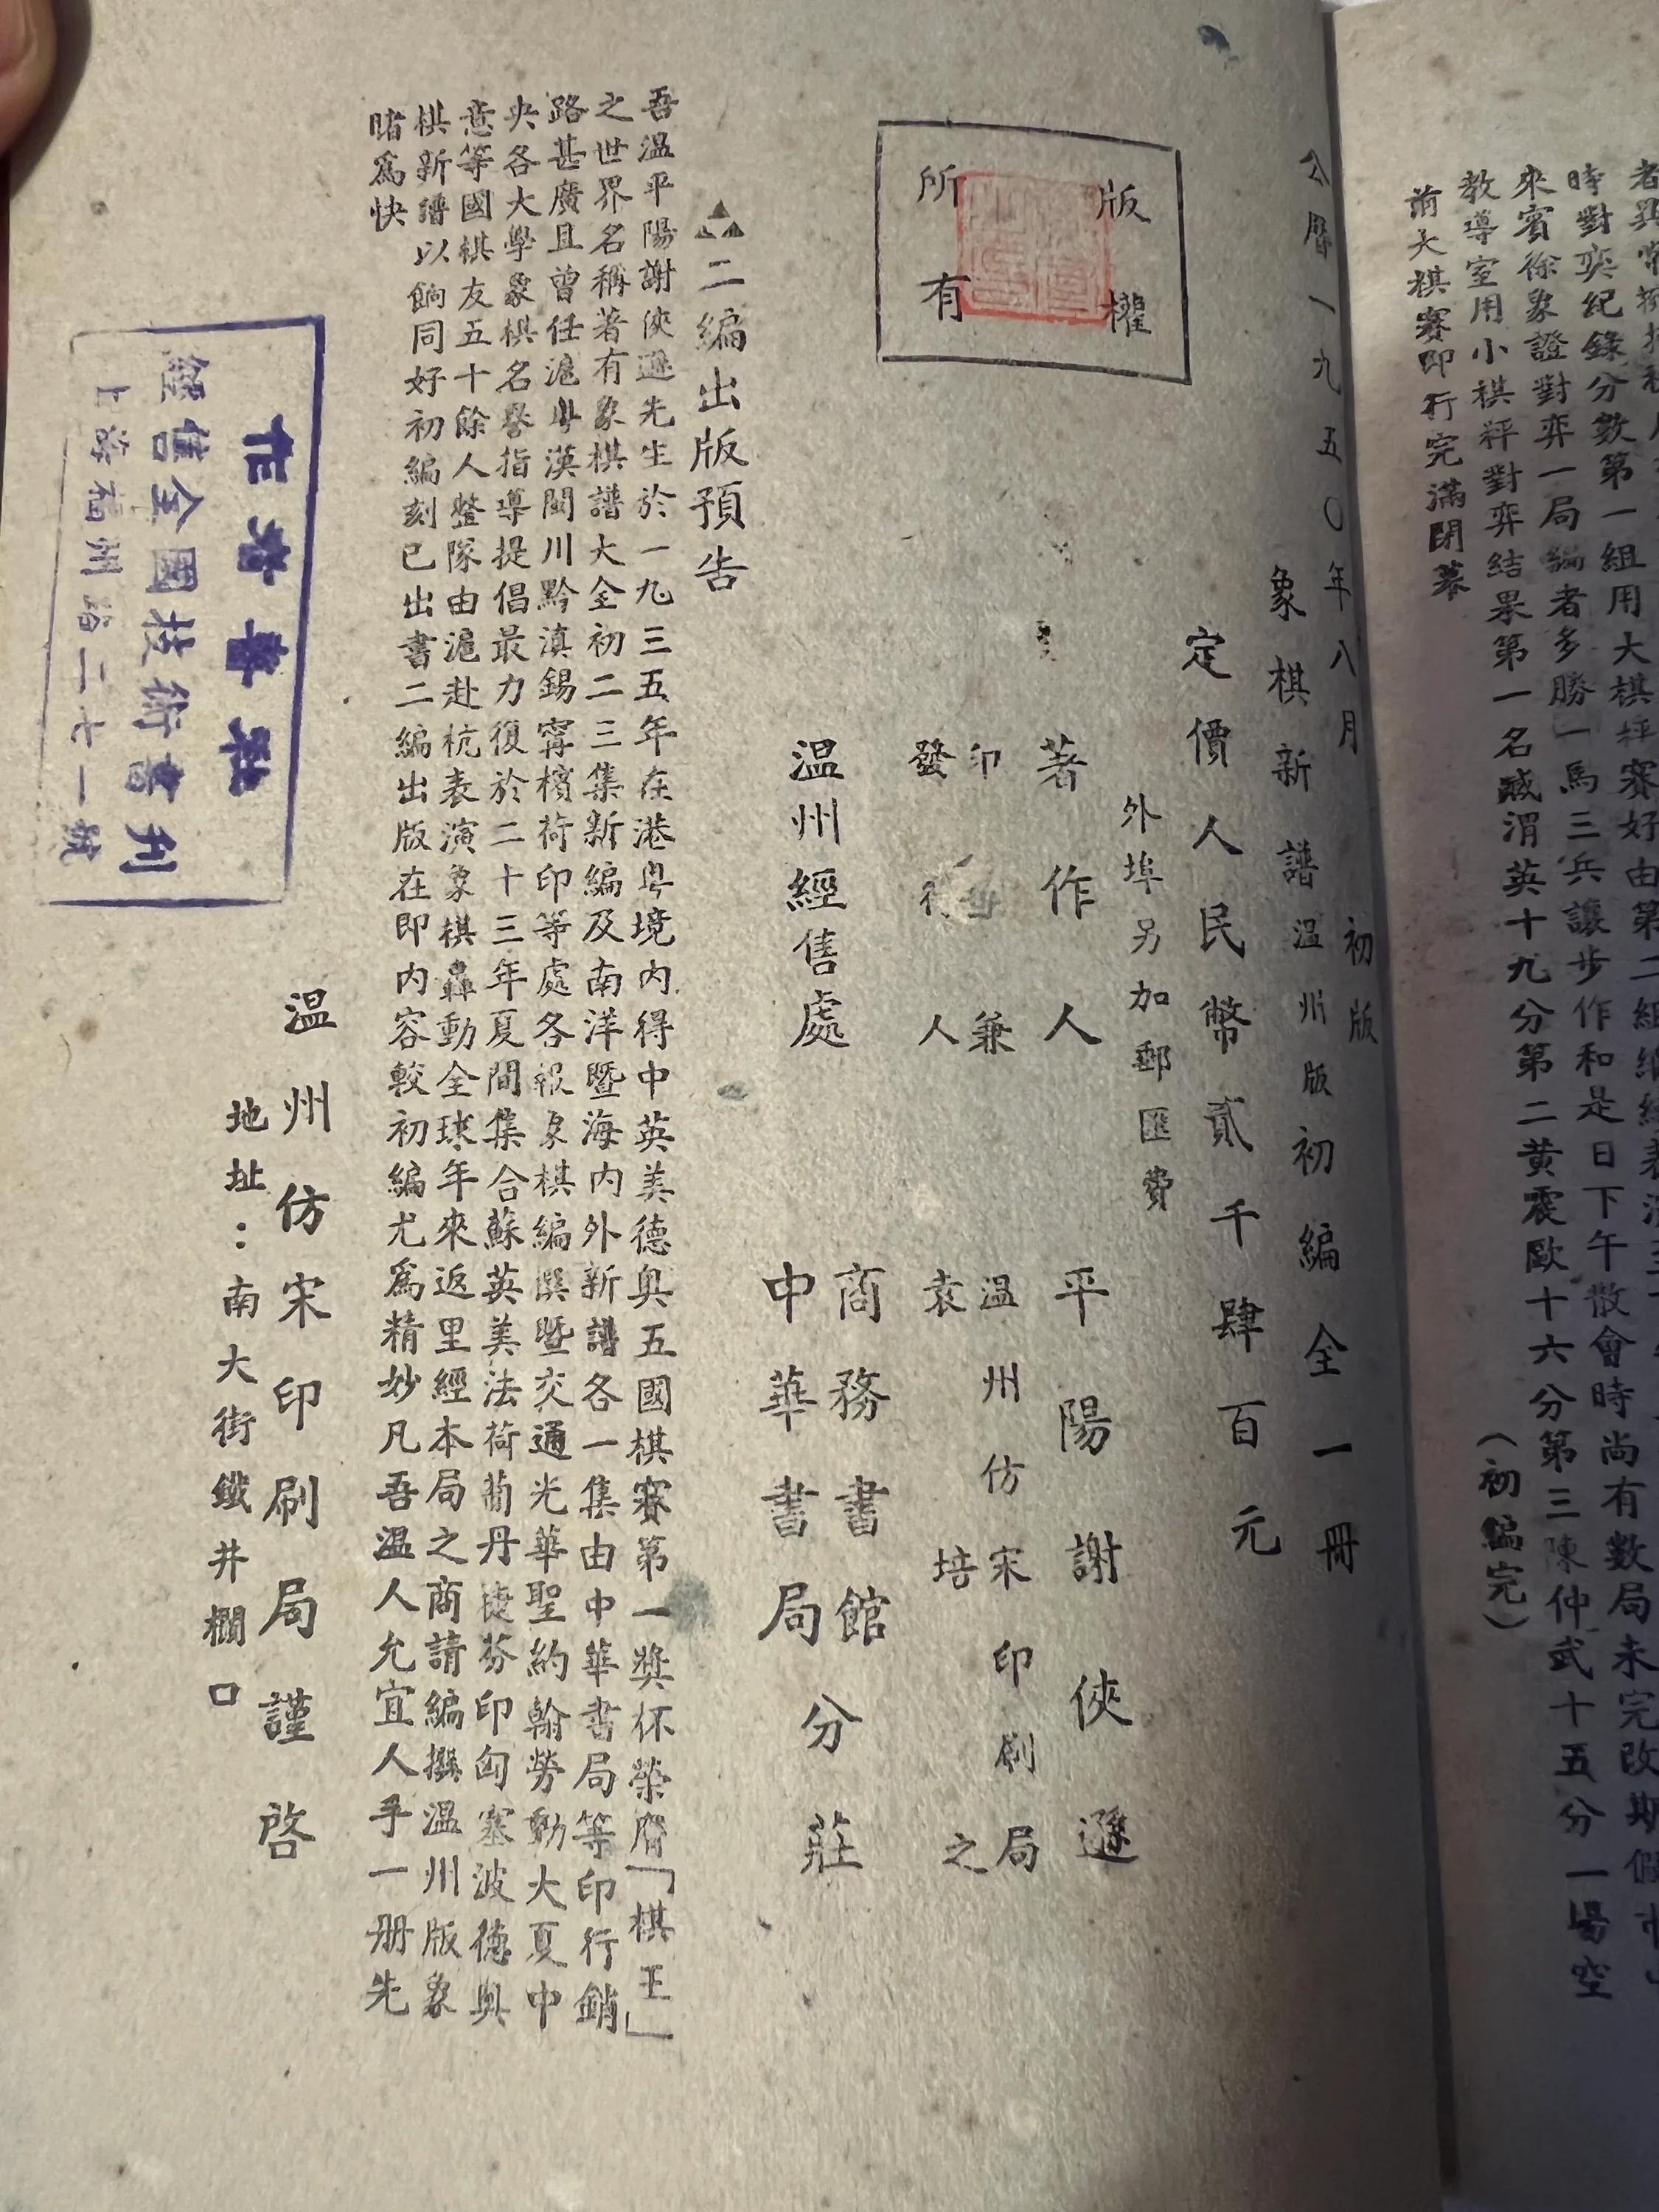 時對奕紀錄分數第一組用大棋枰賽好由第二組
來賓徐象證對弈一局編者多勝一馬三兵讓步作和是日下午散會時尚有數局未完改期
教導室用小棋枰對弈結果第一名戚渭英十九分第二黄震歐十六分第三陳仲武十五分一場空
前大棋賽即行完滿閉幕
（初編完）
公曆一九五〇年八月初版
象棋新譜溫州版初編全一冊
定價人民幣貳千肆百元
外埠另加郵匯費
版權
所有
著作人 平陽謝俠遜
印 兼 溫州仿宋印刷局
發行人 袁培之
溫州經售處
商務書館
中華書局
分莊
二編出版預告
吾溫平陽謝俠遜先生於一九三五年在港粤境内得中英美德奥五國棋賽第一獎杯榮膺「棋王」
之世界名稱著有象棋譜大全初二三集新編及南洋暨海内外新譜各一集由中華書局等印行銷
路甚廣且曾任滬粤漢閩川黔滇錫甯檳荷印等處各報象棋編撰暨交通光華聖約翰勞動大夏中
央各大學象棋名譽指導提倡最力復於二十三年夏間集合蘇英美法荷葡丹捷芬印匈塞波德奥
意等國棋友五十餘人整隊由滬赴杭表演象棋轟動全球年來返里經本局之商請編撰溫州版象
棋新譜以餉同好初編刻已出書二編出版在即内容較初編尤爲精妙凡吾溫人允宜人手一册先
睹爲快
溫州仿宋印刷局謹啓
地址：南大街鐵井欄口
作者書社
經售全國技術書刊
上海福州路二七一號